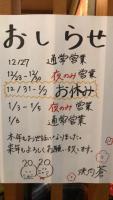 おしらせ
12/27 通常営業
12/28-12/30 夜のみ営業
12/31-1/2 お休み
1/3-1/5 夜のみ営業
1/6 通常営業
本年もお世話になりました。
来年もよろしくお願い致します。
2020
焼肉